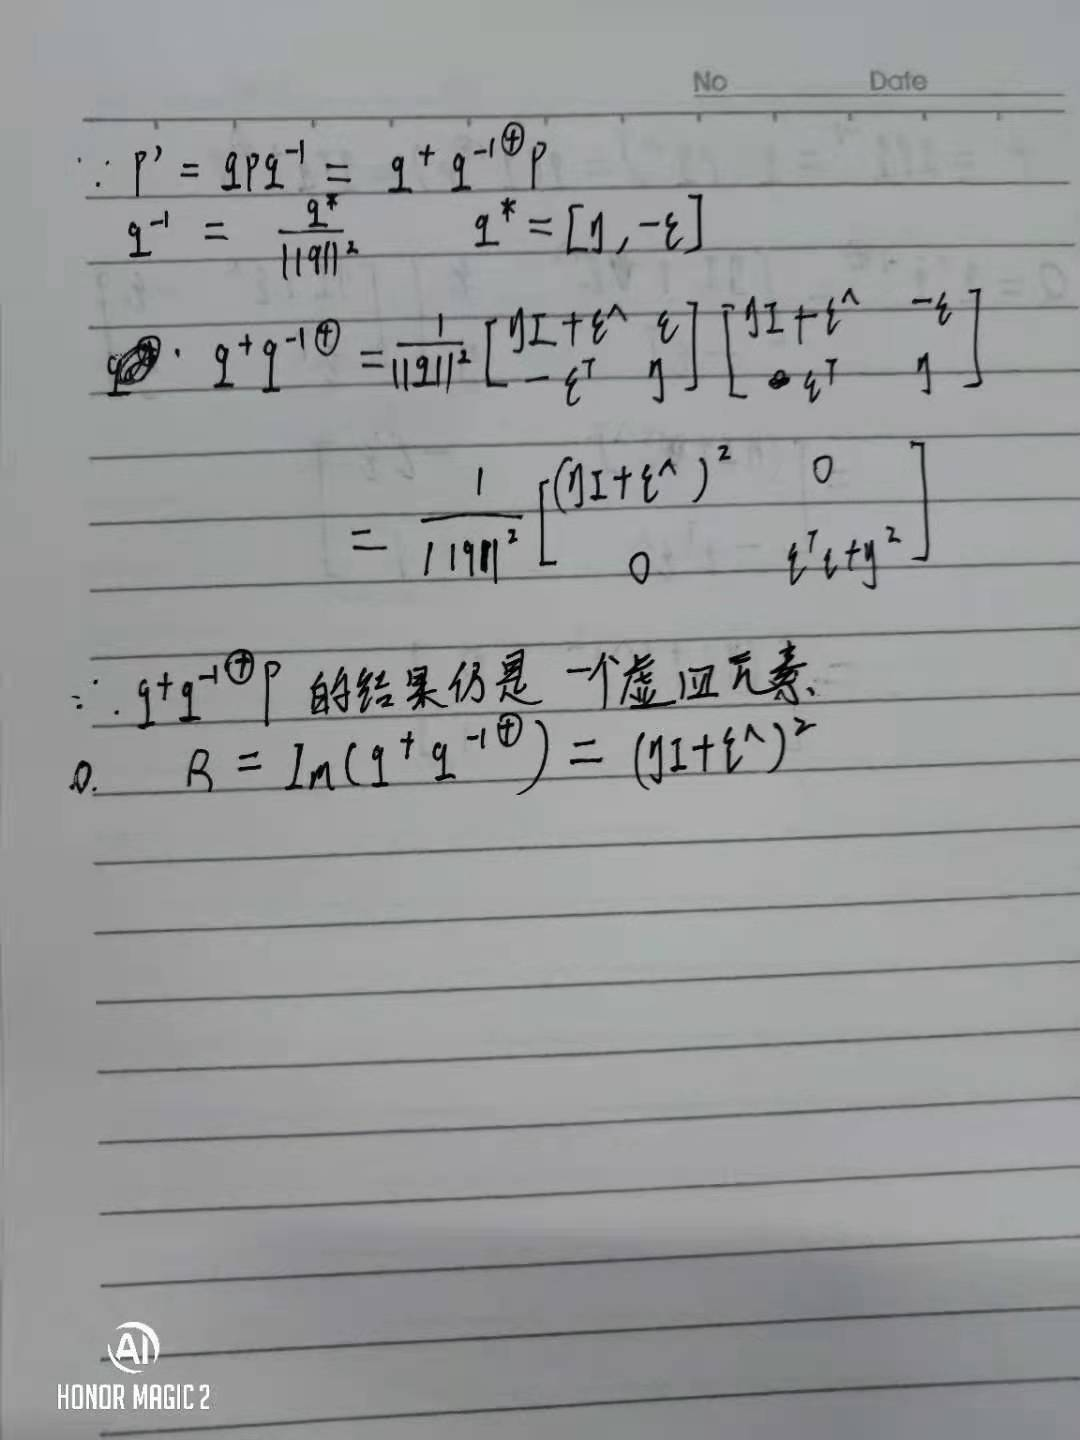 No Date
∵ p' = qpq⁻¹ = q⁺ q⁻¹^⊕ p
q⁻¹ = q*/||q||² q* = [η, -ε]
· q⁺q⁻¹^⊕ = 1/||q||² [ηI+ε^ ε; -εᵀ η] [ηI+ε^ -ε; εᵀ η]
= 1/||q||² [(ηI+ε^)² 0; 0 εᵀε+η²]
∴ q⁺q⁻¹^⊕ p 的结果仍是一个虚四元素、
R = Im(q⁺ q⁻¹^⊕) = (ηI+ε^)²
AI
HONOR MAGIC 2